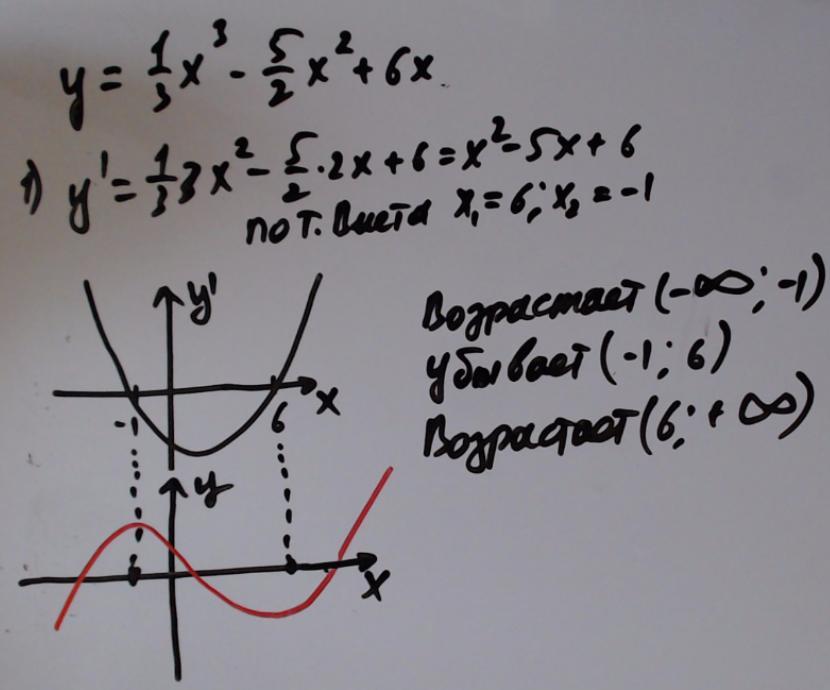 y = 1/3 x³ - 5/2 x² + 6x
1) y' = 1/3 3x² - 5/2 · 2x + 6 = x² - 5x + 6
по т. Виета x₁ = 6; x₂ = -1
y'
x
-1
6
Возрастает (-∞; -1)
убывает (-1; 6)
Возрастает (6; +∞)
y
x